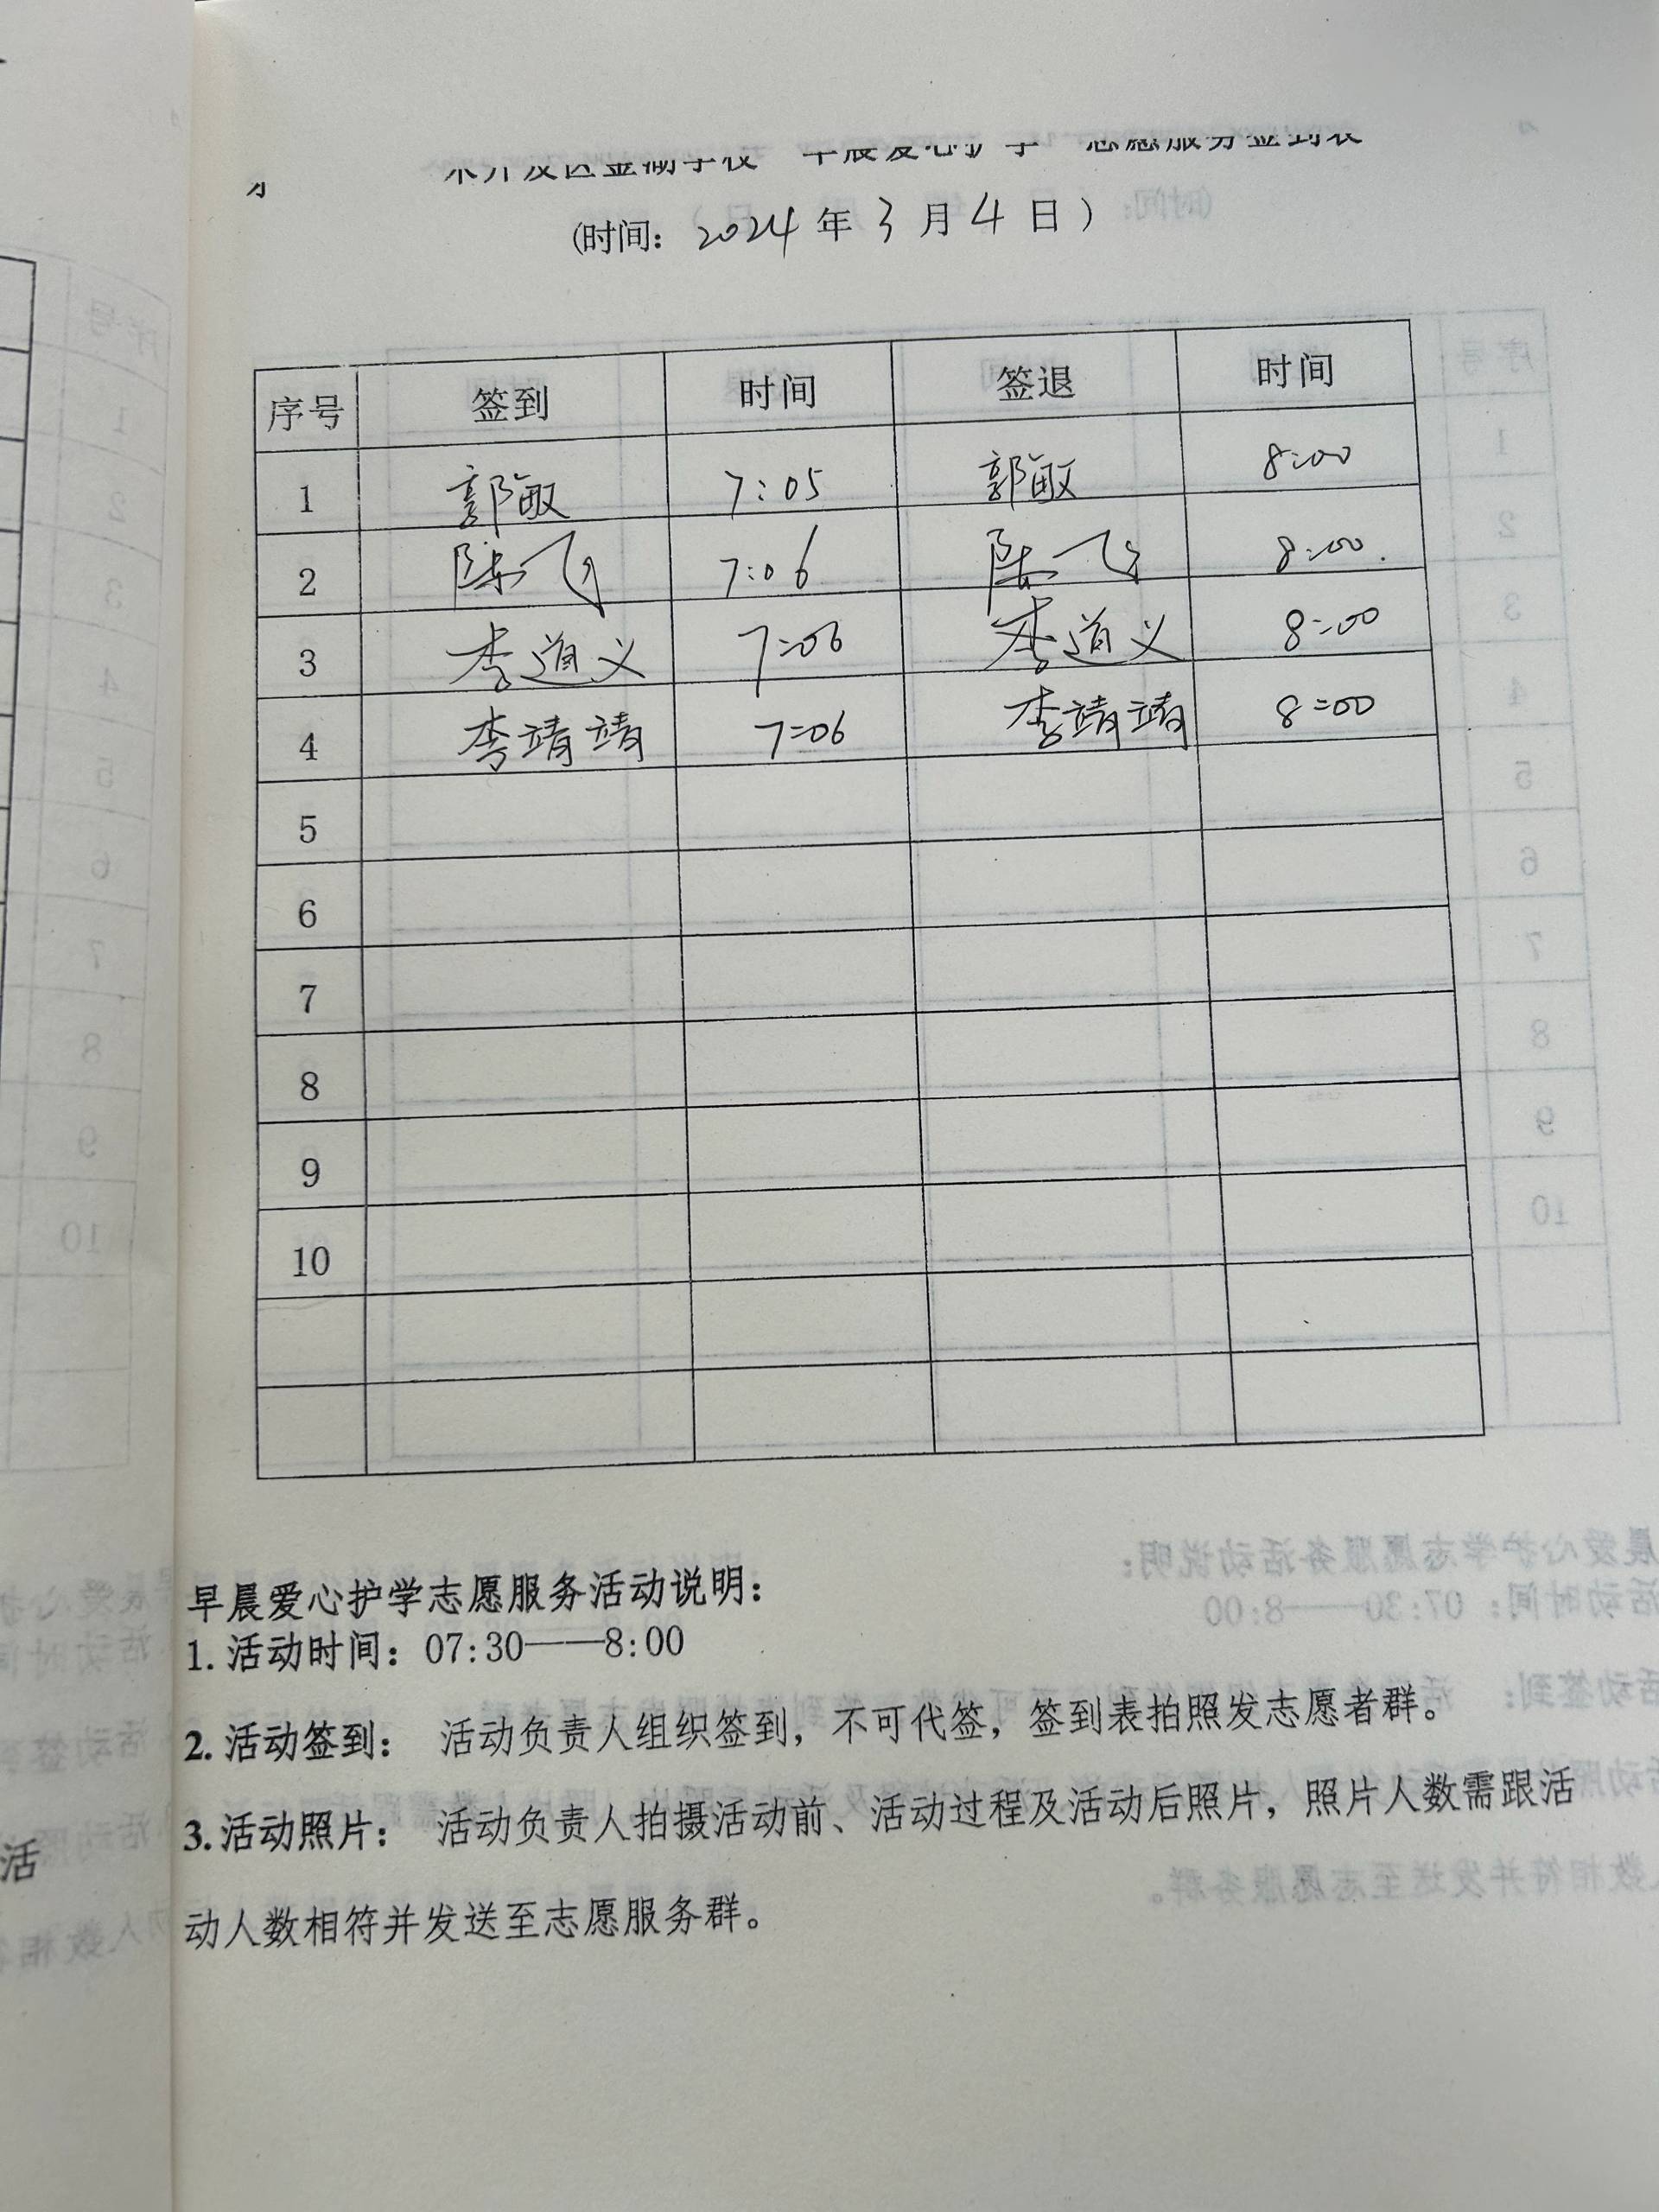 金湖学校 早晨爱心护学 志愿服务签到表
(时间: 2024 年 3 月 4 日)
序号 签到 时间 签退 时间
1 郭敏 7:05 郭敏 8:00
2 陈飞 7:06 陈飞 8:00.
3 李道义 7:06 李道义 8:00
4 李靖靖 7:06 李靖靖 8:00
5
6
7
8
9
10
早晨爱心护学志愿服务活动说明:
1. 活动时间: 07:30——8:00
2. 活动签到: 活动负责人组织签到, 不可代签, 签到表拍照发志愿者群。
3. 活动照片: 活动负责人拍摄活动前、活动过程及活动后照片, 照片人数需跟活
动人数相符并发送至志愿服务群。
活